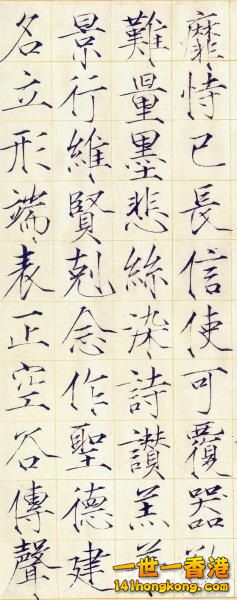 靡恃已長信使可覆器
難量墨悲絲染詩讚羔
景行維賢剋念作聖德建
名立形端表正空谷傳聲
一世一香港
141hongkong.com